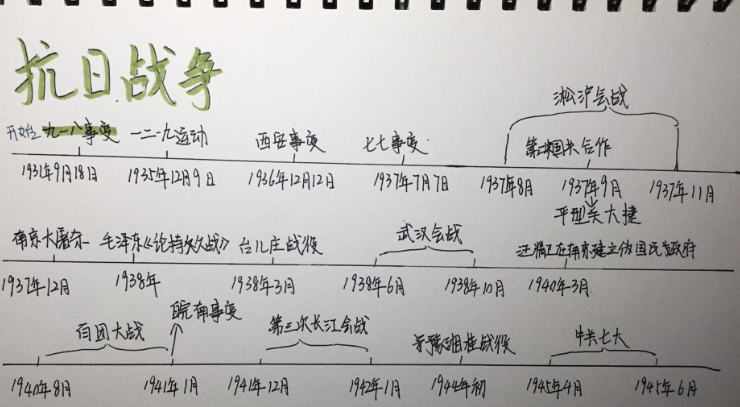 抗日战争
淞沪会战
开始 九一八事变 一二·九运动 西安事变 七七事变 第二次国共合作
1931年9月18日 1935年12月9日 1936年12月12日 1937年7月7日 1937年8月 1937年9月 1937年11月
平型关大捷
南京大屠杀 毛泽东《论持久战》 台儿庄战役 武汉会战 汪精卫在南京建立伪国民政府
1937年12月 1938年 1938年3月 1938年6月 1938年10月 1940年3月
皖南事变
百团大战 第三次长江会战 豫湘桂战役 中共七大
1940年8月 1941年1月 1941年12月 1942年1月 1944年初 1945年4月 1945年6月